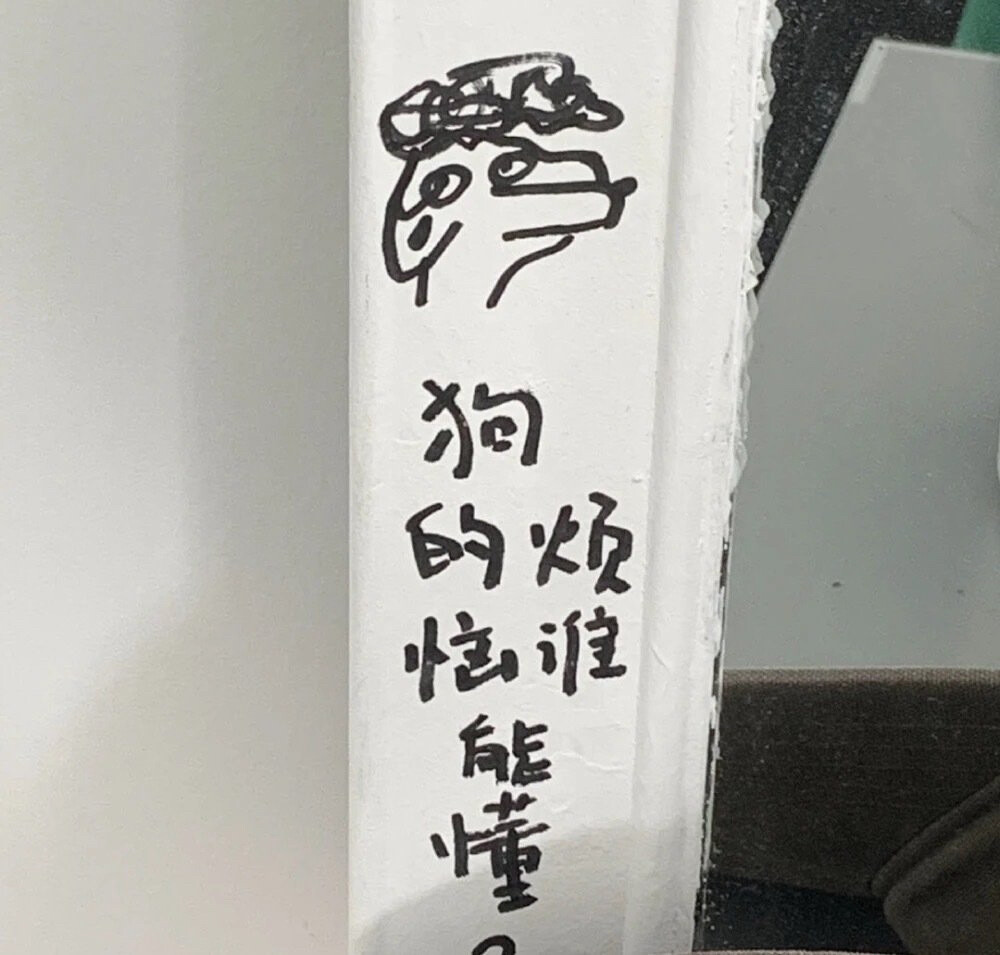 狗
的烦
恼谁
能
懂
?